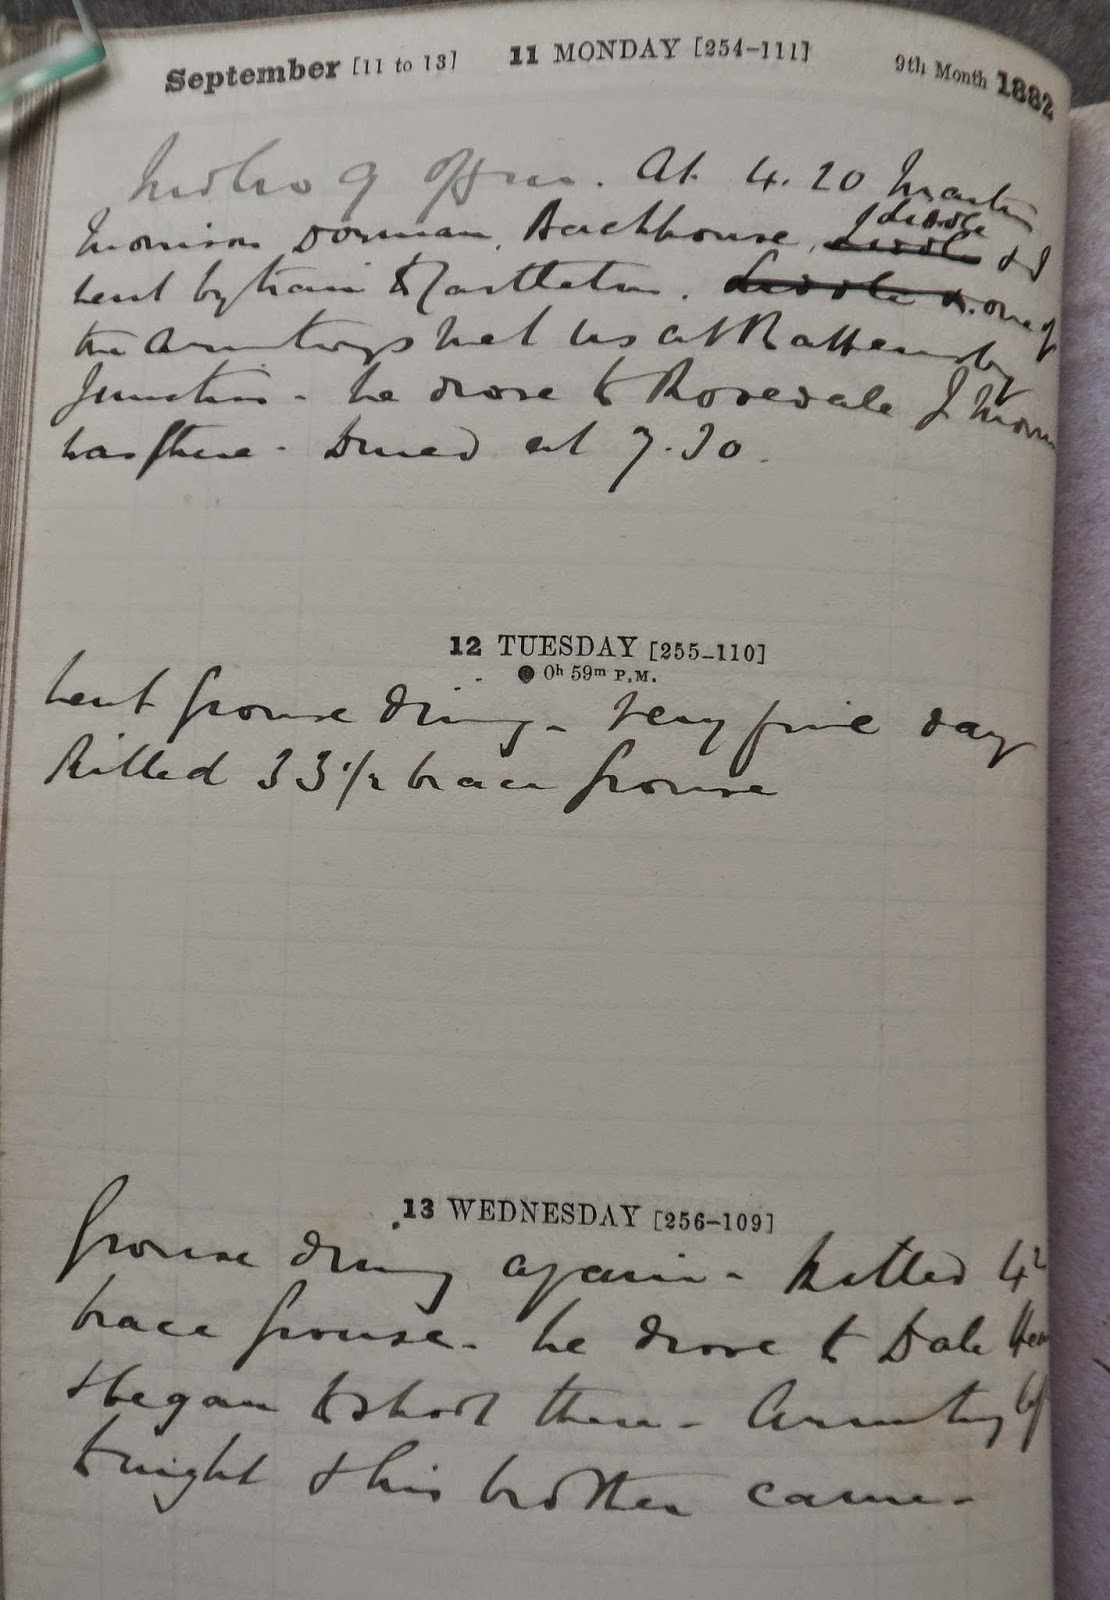 September [11 to 13] 11 MONDAY [254–111] 9th Month 1882
At 4.20 Martin
Liddle
Morrison Dorman, Backhouse, & I
went by train to Castleton. one of
the Armitages met us at Battersby
Junction - We drove to Rosedale J Morr
was there - Dined at 7.30.
12 TUESDAY [255–110]
0h 59m P.M.
Went grouse driving - Very fine day
Killed 33 1/2 brace grouse
13 WEDNESDAY [256–109]
Grouse driving again - Killed 42
brace grouse - We drove to Dale Hea
& began to shoot there - left
to night & his brother came -